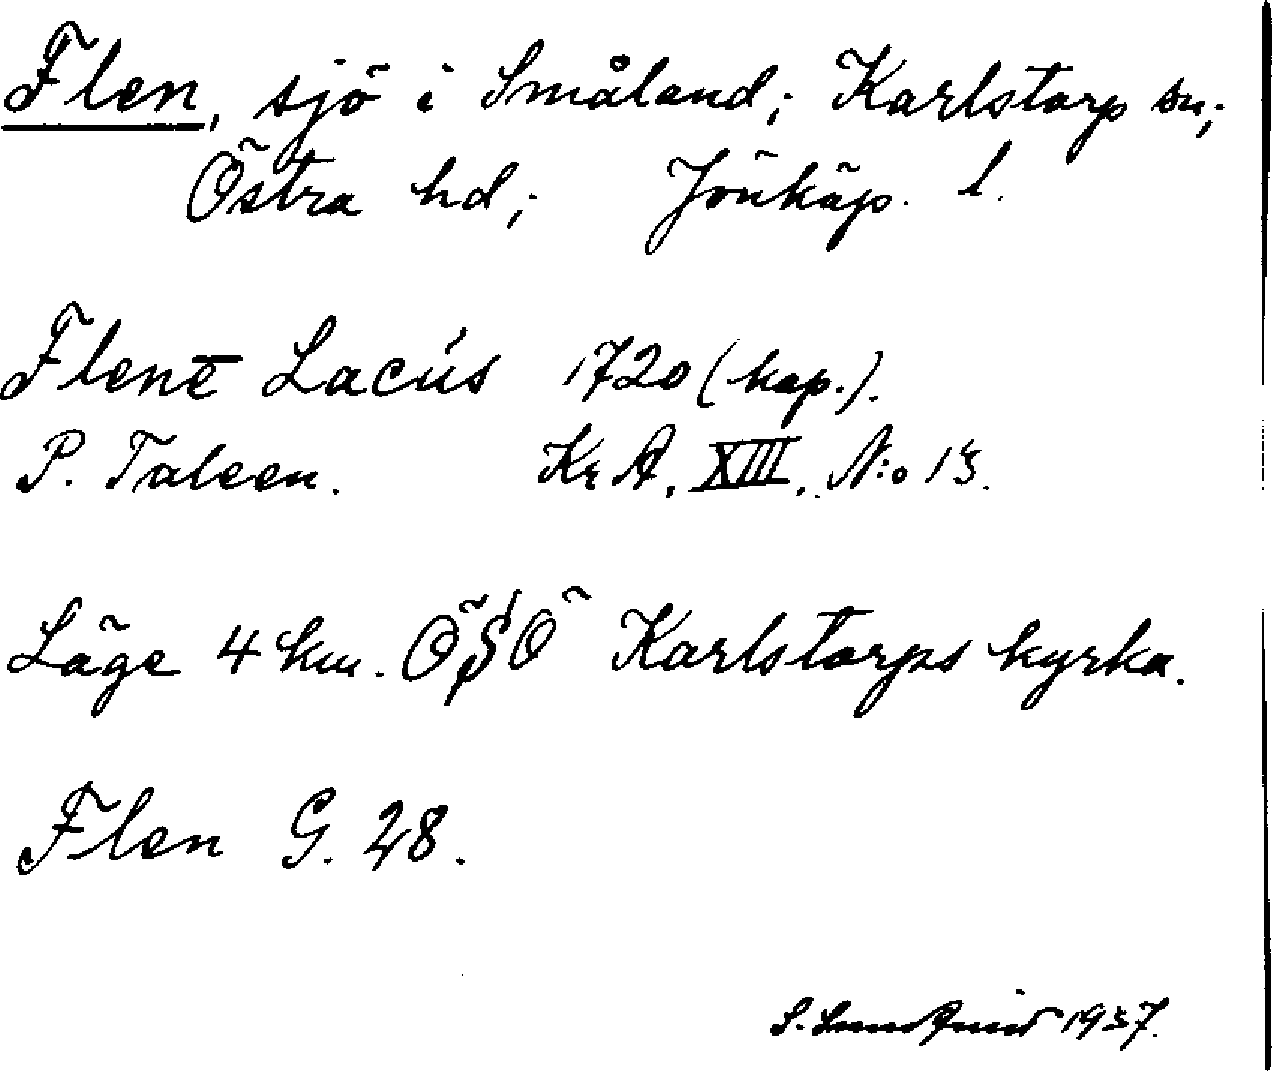 Flen, sjö i Småland; Karlstorp sn;
Östra hd; Jönköp. l.
Flenē Lacús 1720 (kop.).
P. Taleen. Kr A. XIII. N:o 13.
Läge 4 km. ÖSÖ Karlstorps kyrka.
Flen G. 28.
S. Lundquist 1937.